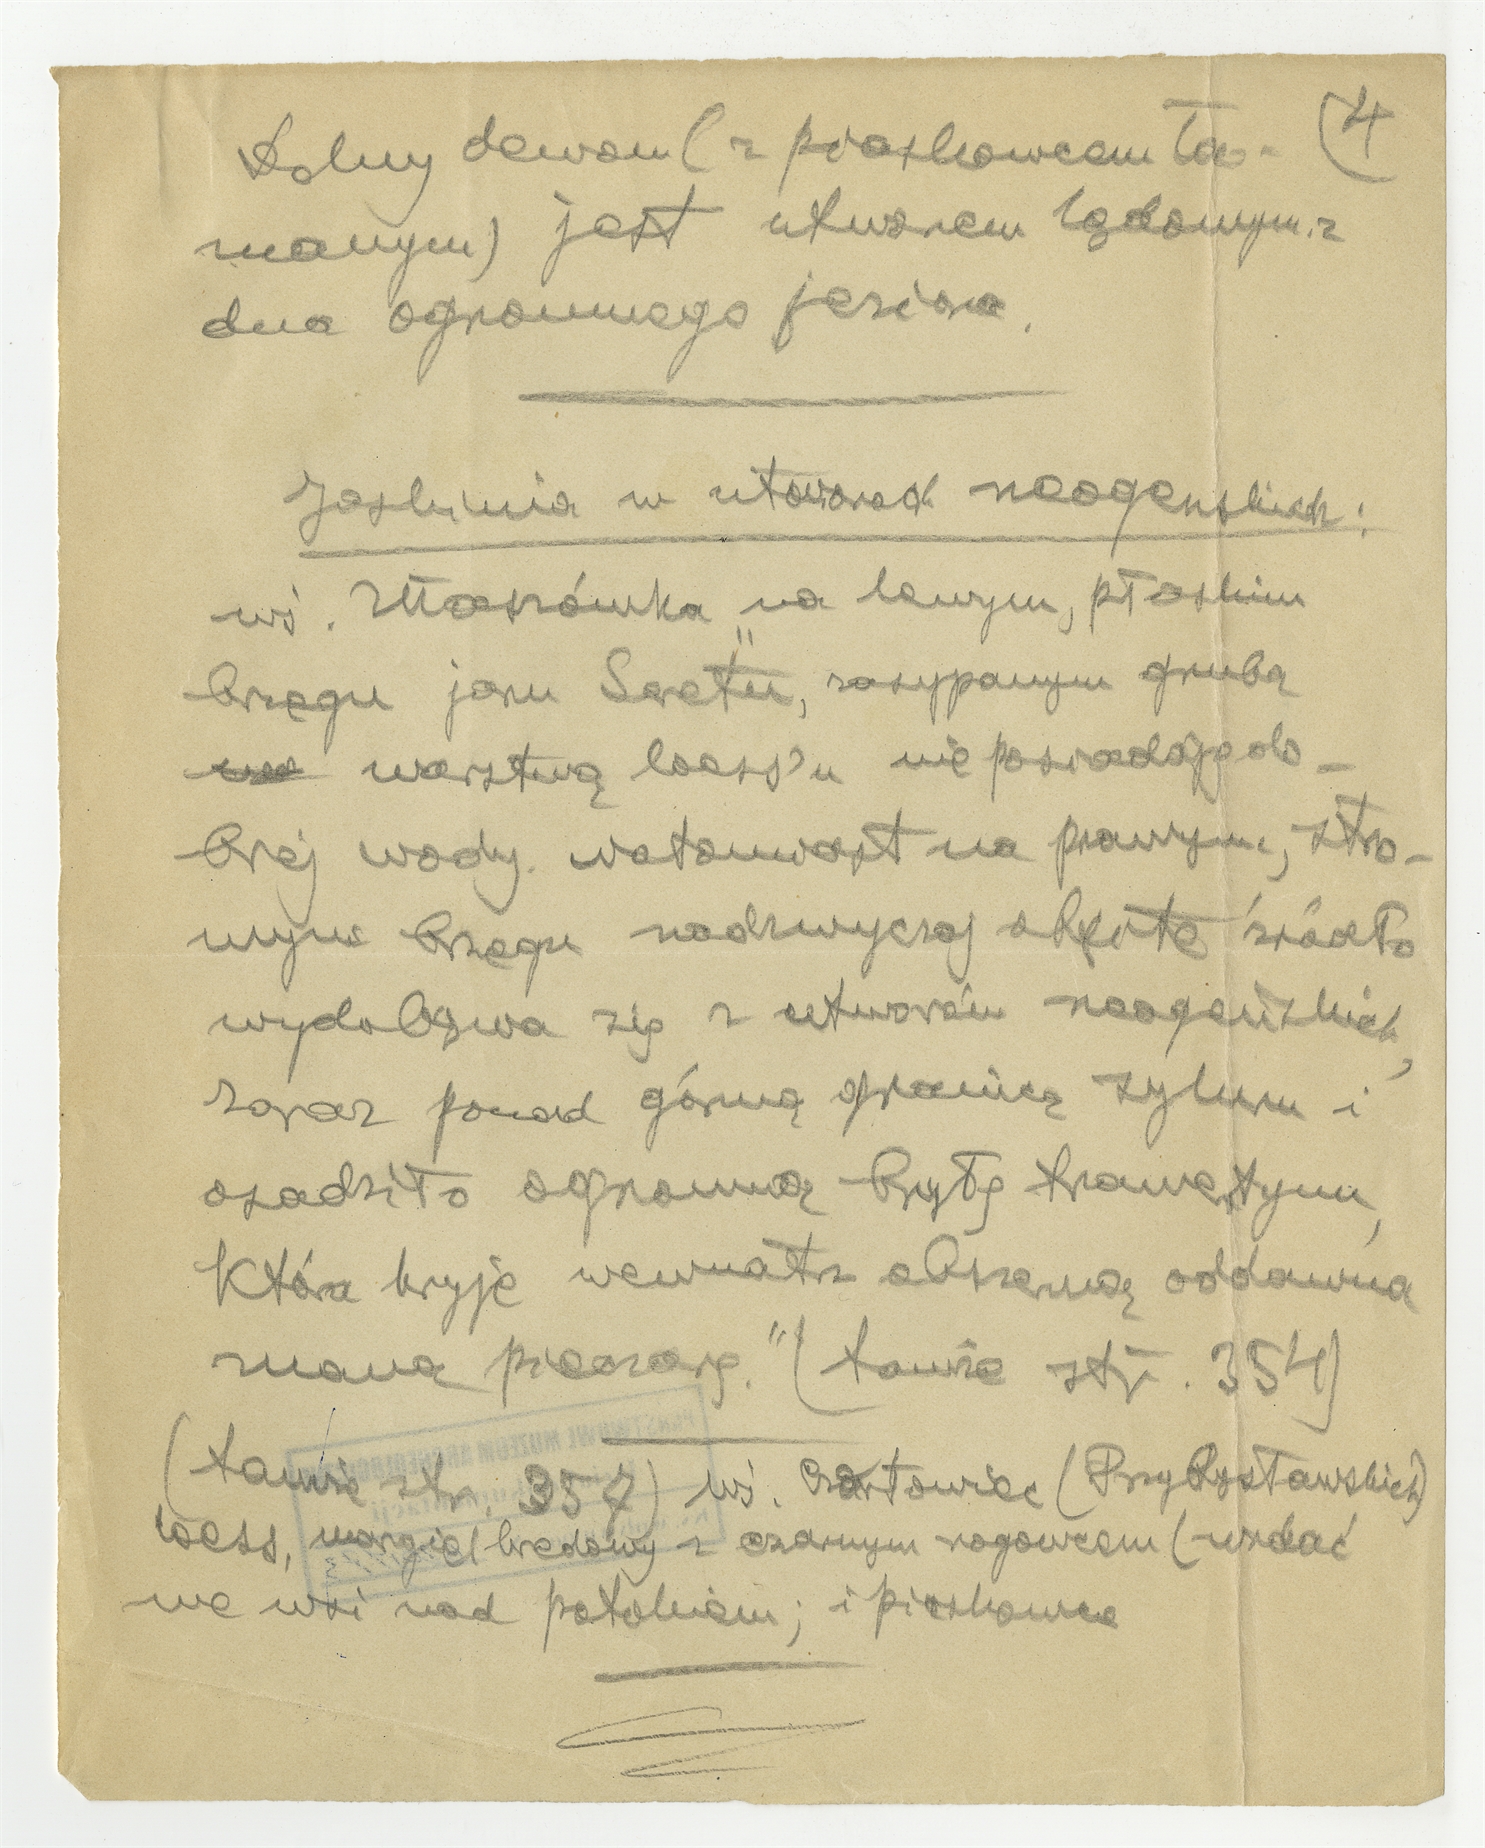 (4
Dolny dewon (z piaskowcem ła-
manym) jest utworem lądowym z
dna ogromnego jeziora.
Jaskinia w utworach neogeńskich:
wś. Monasterówka "na lewym, płaskim
brzegu jaru Seretu, zasypanym grubą
warstwą loess'u nie posiadają do-
brej wody. natomiast na prawym, stro-
mym brzegu nadzwyczaj obfite źródło
wydobywa się z utworów neogeńskich,
zaraz ponad górną granicą syluru i
osadziło ogromną bryłę trawertynu,
która kryje wewnątrz obszerną oddawna
znaną pieczarę." (tamże str. 354)
(tamże str. 357) wś. Czartowiec (Przybysławskich)
loess, margiel kredowy z czarnym rogowcem (widać
we wsi nad potokiem; i piaskowce
PAŃSTWOWE MUZEUM ARCHEOLOGICZNE